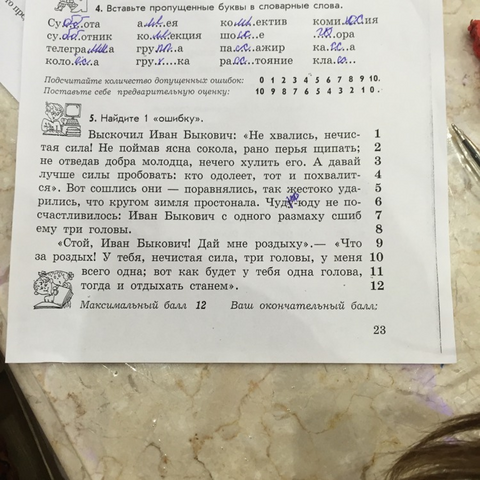 4. Вставьте пропущенные буквы в словарные слова.
Су...ота а...ея ко...ектив коми...ия
су...отник ко...екция шо...е ...ора
телегра...а гру...а па...ажир ка...а
коло...а гру...ка ра...тояние кла...
Подсчитайте количество допущенных ошибок: 0 1 2 3 4 5 6 7 8 9 10.
Поставьте себе предварительную оценку: 10 9 8 7 6 5 4 3 2 1 0.
5. Найдите 1 «ошибку».
Выскочил Иван Быкович: «Не хвались, нечис- 1
тая сила! Не поймав ясна сокола, рано перья щипать; 2
не отведав добра молодца, нечего хулить его. А давай 3
лучше силы пробовать: кто одолеет, тот и похвалит- 4
ся». Вот сошлись они — поравнялись, так жестоко уда- 5
рились, что кругом зимля простонала. Чуду-юду не по- 6
счастливилось: Иван Быкович с одного размаху сшиб 7
ему три головы. 8
«Стой, Иван Быкович! Дай мне роздыху».— «Что 9
за роздых! У тебя, нечистая сила, три головы, у меня 10
всего одна; вот как будет у тебя одна голова, 11
тогда и отдыхать станем». 12
Максимальный балл 12 Ваш окончательный балл:
23